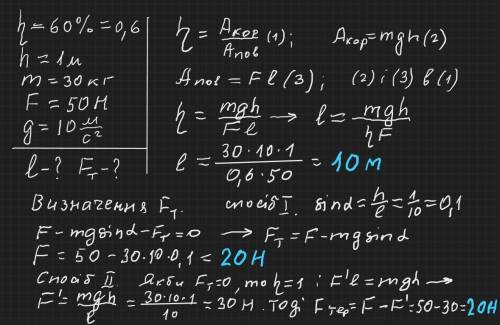 η = 60% = 0,6
h = 1м
m = 30кг
F = 50Н
g = 10 м/с²
l - ? Fт - ?
η = Aкор/Aпов (1); Aкор = mgh (2)
Aпов = Fl (3); (2) і (3) в (1)
η = mgh/Fl → l = mgh/ηF
l = 30·10·1/0,6·50 = 10 м
Визначення Fт. спосіб I. sinα = h/l = 1/10 = 0,1
F - mgsinα - Fт = 0 → Fт = F - mgsinα
F = 50 - 30·10·0,1 = 20Н
Спосіб II. Якби Fт = 0, то η = 1 і F'l = mgh →
F' = mgh/l = 30·10·1/10 = 30Н. Тоді Fтер = F - F' = 50 - 30 = 20Н